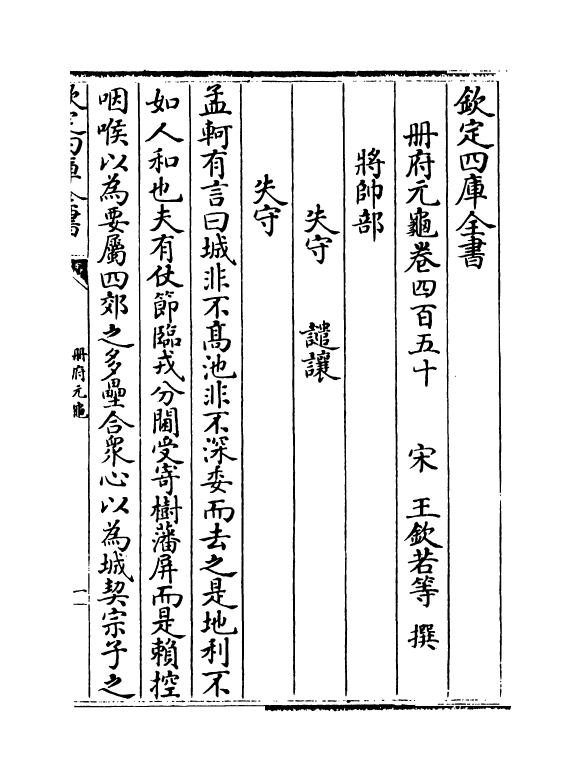 欽定四庫全書
冊府元龜卷四百五十　宋　王欽若等　撰
將帥部
失守　譴讓
失守
孟軻有言曰城非不高池非不深委而去之是地利不
如人和也夫有仗節臨戎分閫受寄樹藩屏而是賴控
咽喉以為要屬四郊之多壘合衆心以為城契宗子之
欽定四庫全書
冊府元龜